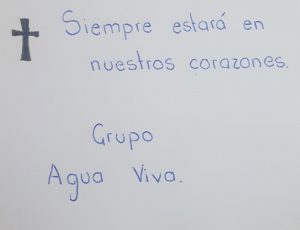 Siempre estará en
nuestros corazones.
Grupo
Agua Viva.